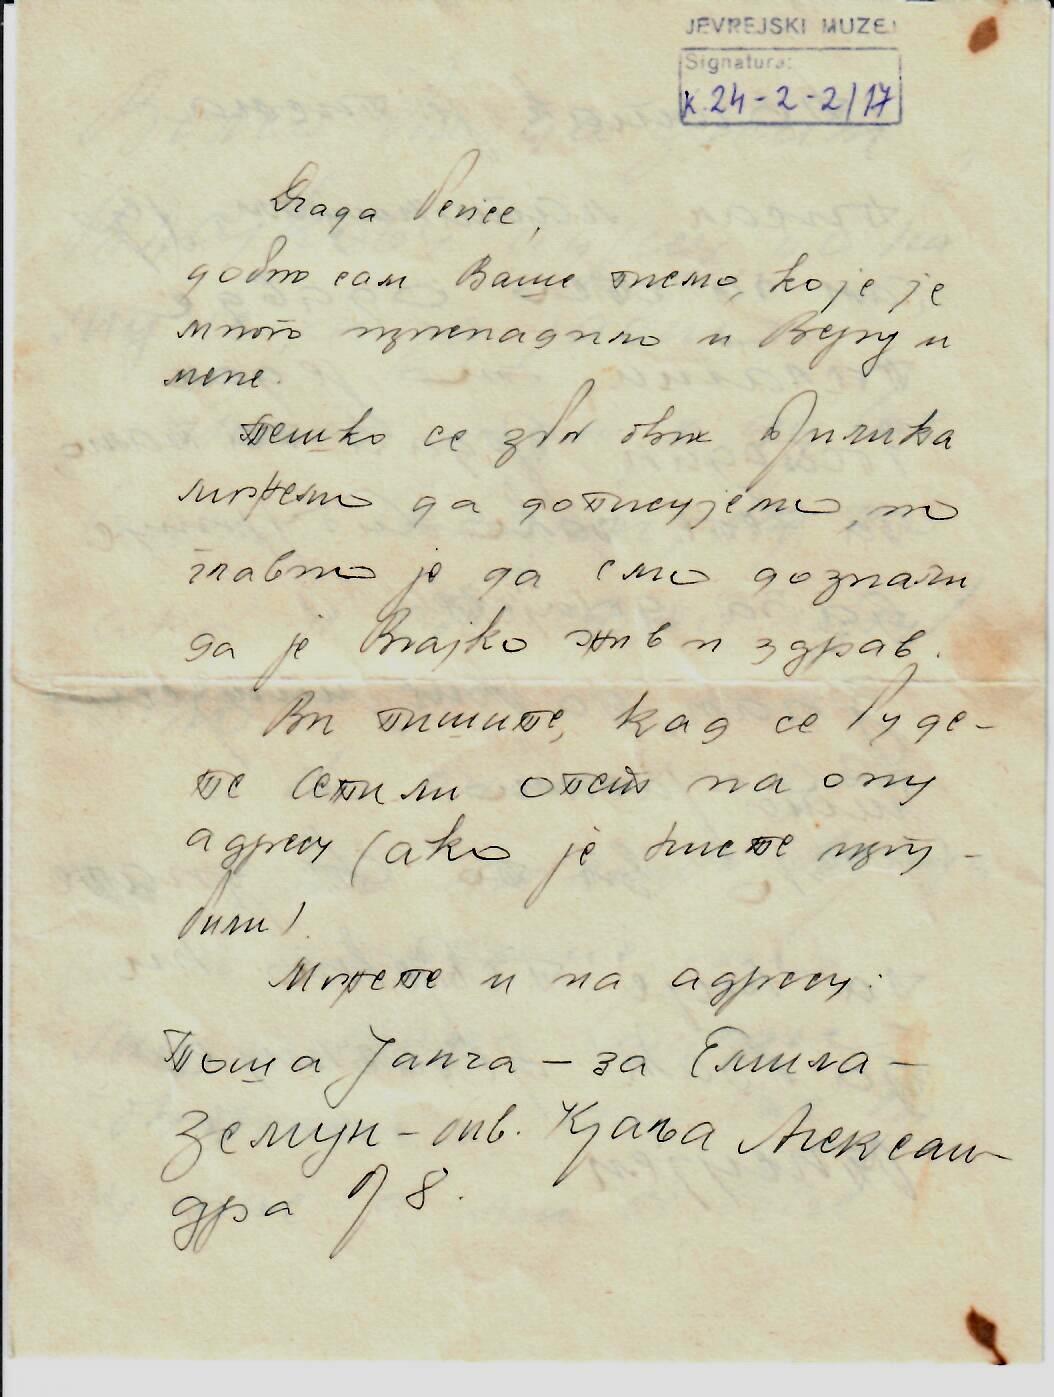 JEVREJSKI MUZEJ
Signatura:
K. 24-2-2/17
Драга
добио сам Ваше писмо, које је
много изненадило и Веру и
мене.
Тешко се због ових прилика
можемо да дописујемо, но
главно је да смо дознали
да је Влајко жив и здрав.
Ви пишите, кад се буде-
те сетили опет на ону
адресу (ако је нисте изгу-
били).
Можете и на адресу:
Тоша Јанча – за Емила –
Земун – Краља Алексан-
дра 8.